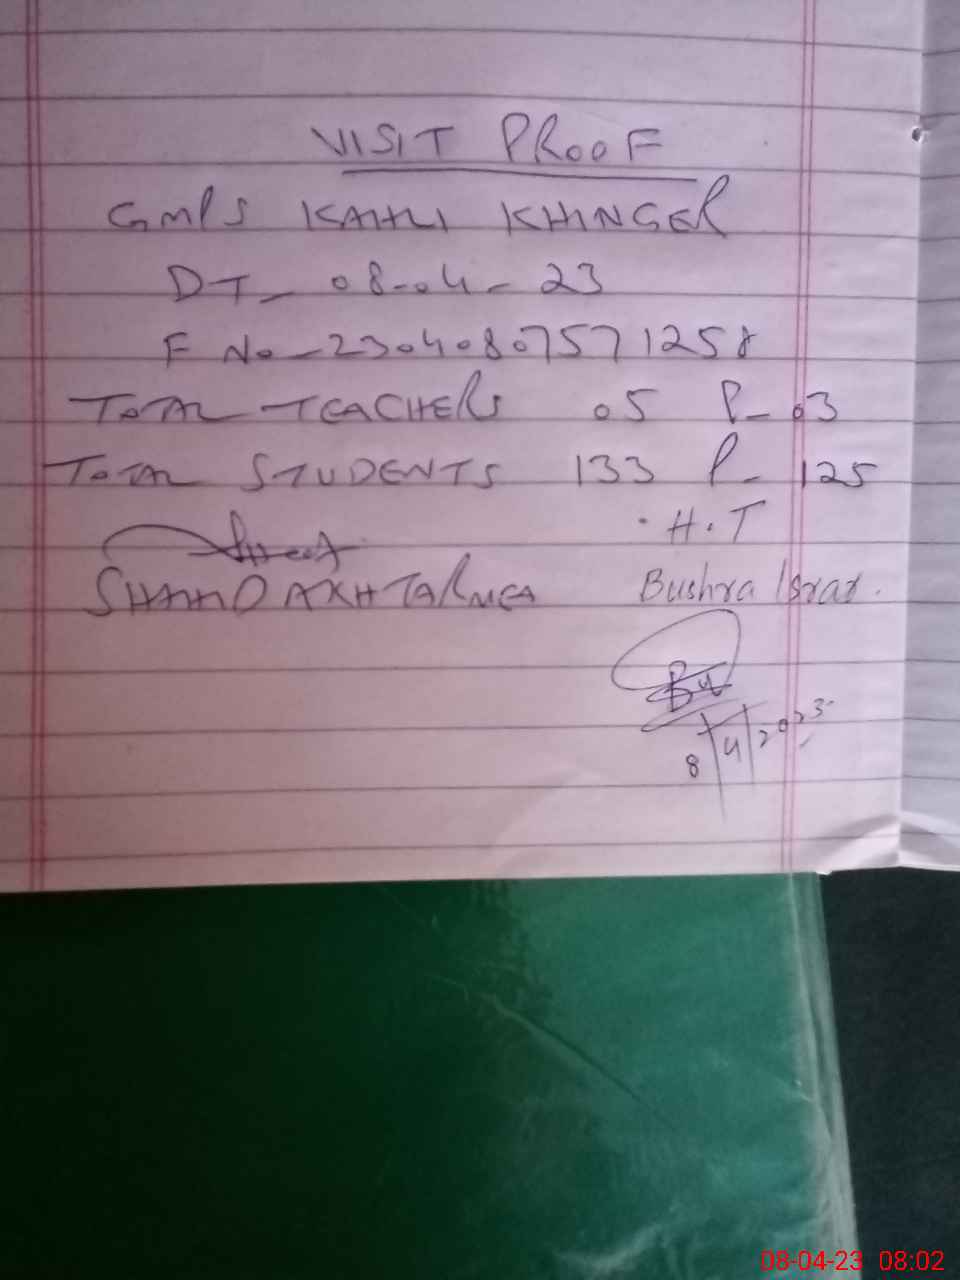 VISIT PROOF
GMPS KAHLI KHINGER
DT - 08-04-23
F No - 23040807571258
TOTAL TEACHERS 05 P- 03
TOTAL STUDENTS 133 P- 125
H.T
SHAHID AKHTAR MEA Bushra Israr.
8/4/2023
08-04-23 08:02